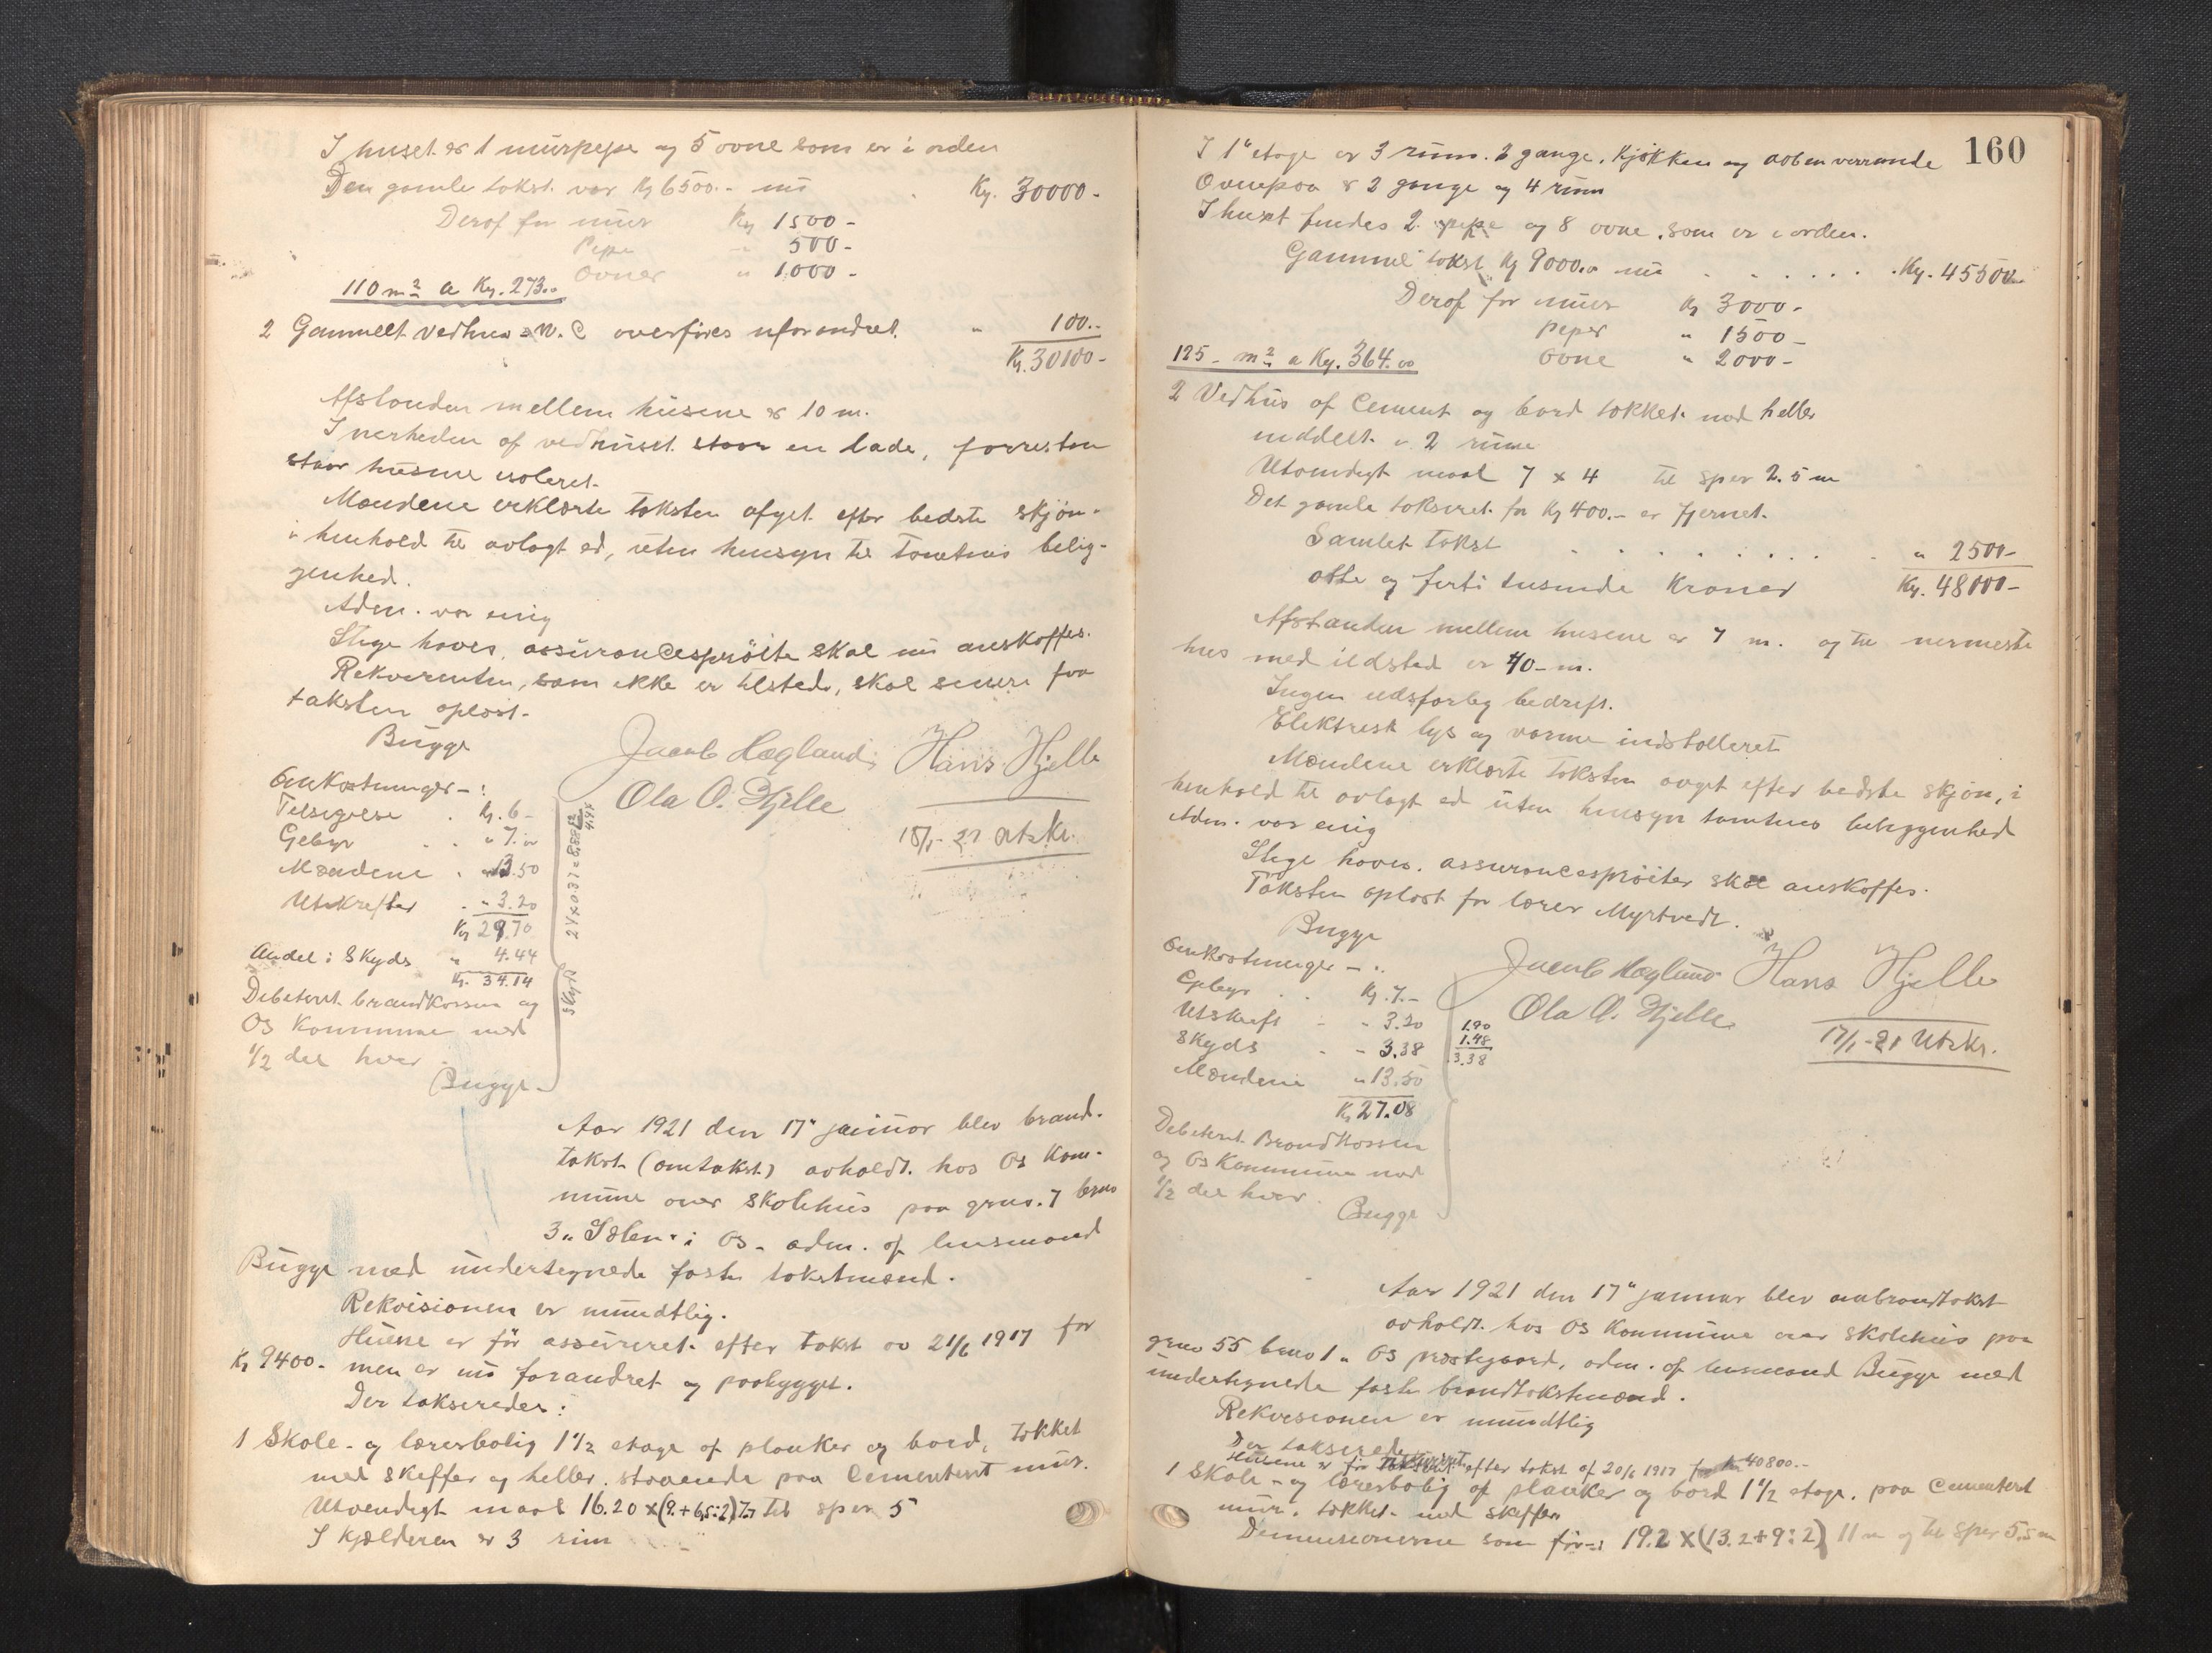 I huset er 1 murpepe og 5 ovne som er i orden
Den gamle takst var Kr 6500.- nu Kr. 30000-
Deraf for mur Kr 1500-
Pipe " 500-
Ovner " 1000-
110 m² a Kr. 273.00
2 Gammelt vedhus & W.C overføres uforandret. " 100..
Kr. 30100-
Afstanden mellem husene er 10 m.
I nerheden af vedhuset staar en lade, forresten
staar husene isoleret.
Mændene erklærte taksten afgit efter bedste skjøn
i henhold til avlagt ed, uten hensyn til tomtens belig-
genhed.
Adm. var enig
Stige haves, assurancesprøite skal nu anskaffes.
Rekvirenten, som ikke er tilstede, skal senere faa
taksten oplæst.
Bugge
Jacob Hegland Hans Hjelle
Ola O. Hjelle
18/1-21 Utskr.
Omkostninger-:
Tilsigelse . Kr. 6-
Gebyr . . " 7.00
Mændene . " 13.50
Utskrifter . " 3.20
Kr 29.70
Andel i Skyds " 4.44
Kr. 34.14
Skyds 24 x 0.37 = 8.88
4.44
Debiteret brandkassen og
Os Kommune med
1/2 del hver.
Bugge-
Aar 1921 den 17" januar blev brand-
takst (omtakst) avholdt hos Os Kom-
mune over skolehus paa grno. 7 brno
3 " i Os- adm. af lensmand
Bugge med undertegnede faste takstmænd.
Rekvisionen er mundtlig.
Husene er før assureret efter takst av 21/6 1917 for
Kr 9400- men er nu forandret og paabygget.
Der takseredes:
1 Skole- og lærerbolig 1 1/2 etage af planker og bord, tækket
med skeffer og heller, staaende paa Cementeret mur.
Utvendigt maal 16.20 x (9.+6.5:2) 7.7 til sper 5
I Kjælderen er 3 rum
160
I 1" etage er 3 rum. 2 gange, Kjøkken og aaben verranda
Ovenpaa er 2 gange og 4 rum
I huset findes 2 pipe og 8 ovne, som er i orden.
Gammel takst Kr 9000.- nu . . . . . . Kr. 45500
Deraf for mur Kr 3000-
Peper " 1500-
Ovne " 2000-
125- m² a Kr. 364.00
2 Vedhus af Cement og bord tækket med heller
inddelt i 2 rum
Utvendigt maal 7 x 4 til sper 2.5 m
Det gamle takseret for Kr 400.- er fjernet.
Samlet takst . . . . . . . " 2500-
otte og firti tusinde Kroner Kr. 48000-
Afstanden mellem husene er 7 m. og til nermeste
hus med ildsted er 40-m.
Ingen ildsfarlig bedrift.
Elektrisk lys og varme indstalleret
Mændene erklærte taksten avgit efter bedste skjøn, i
henhold til avlagt ed uten hensyn tomtens beliggenhed
Adm. var enig
Stige haves. assurancesprøiter skal anskaffes.
Taksten oplæst for lærer Myrtvedt.
Bugge
Jacob Hegland Hans Hjelle
Ola O. Hjelle
17/1-21 Utskr.
Omkostninger-:
Gebyr . . Kr. 7.-
Utskrift - " 3.20
Skyds - - 3.38
Mændene " 13.50
Kr 27.08
1.90
1.48
3.38
Debiteret Brandkassen
og Os Kommune med
1/2 del hver.
Bugge
Aar 1921 den 17" januar blev ombrandtakst
avholdt hos Os Kommune over skolehus paa
grno 55 brno 1 " Os prestegaard, adm. af lensmand Bugge med
undertegnede faste brandtakstmænd.
Rekvisionen er mundtlig
Der takserede
Husene er før assureret efter takst af 20/6 1917 for Kr 40800.-
1 Skole- og lærerbolig af planker og bord 1 1/2 etage, paa Cementert
mur, tækket med skeffer
Dimensionerne som før-: 19.2 x (13.2+9:2) 11 m og til sper 5.5 m